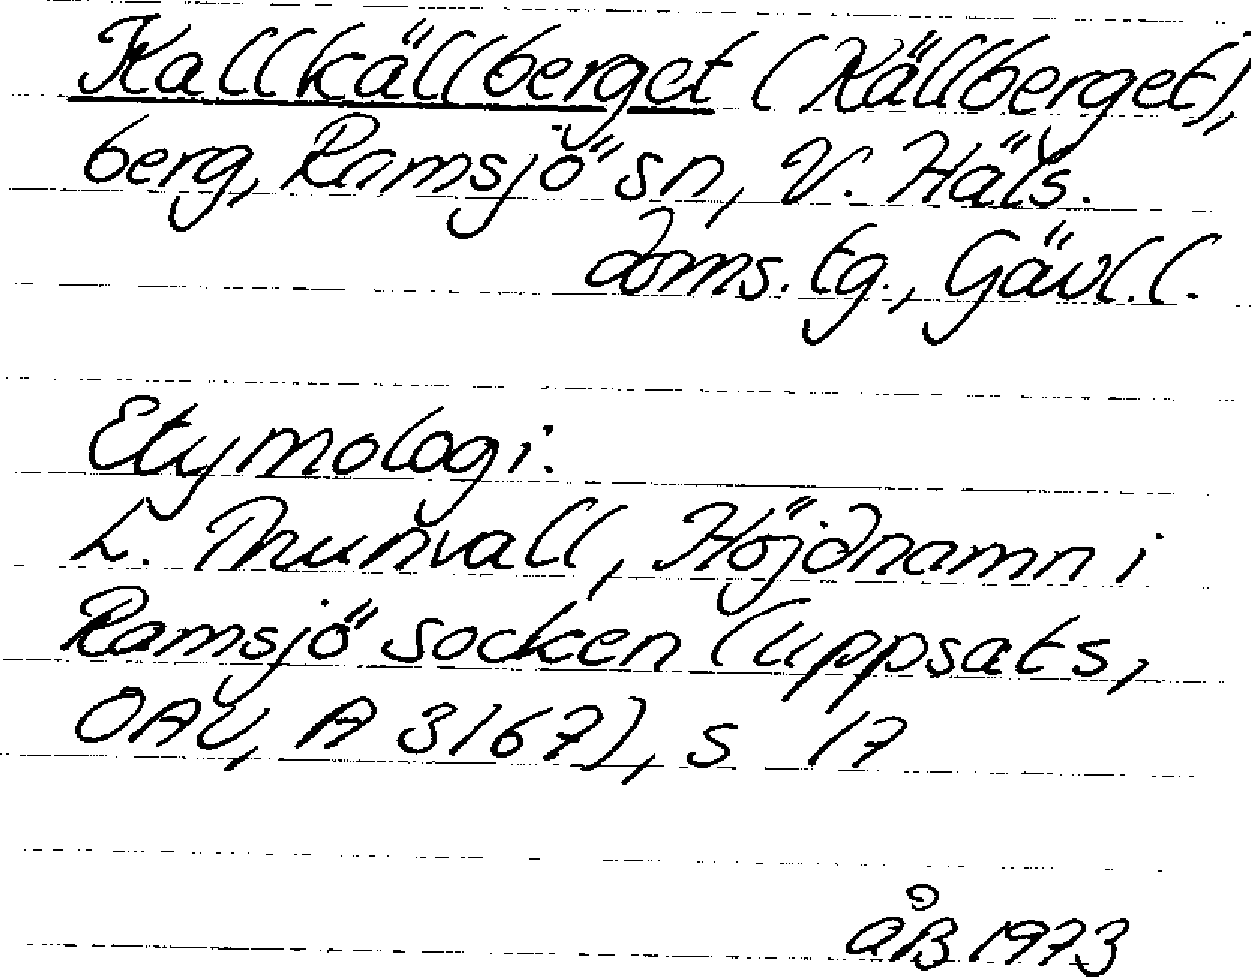 Kallkällberget (Källberget),
berg, Ramsjö sn, V. Häls.
doms.tg., Gävl.l.
Etymologi:
L. Thunvall, Höjdnamn i
Ramsjö socken (uppsats,
OAU, A 3167), s 17
ÅB 1973